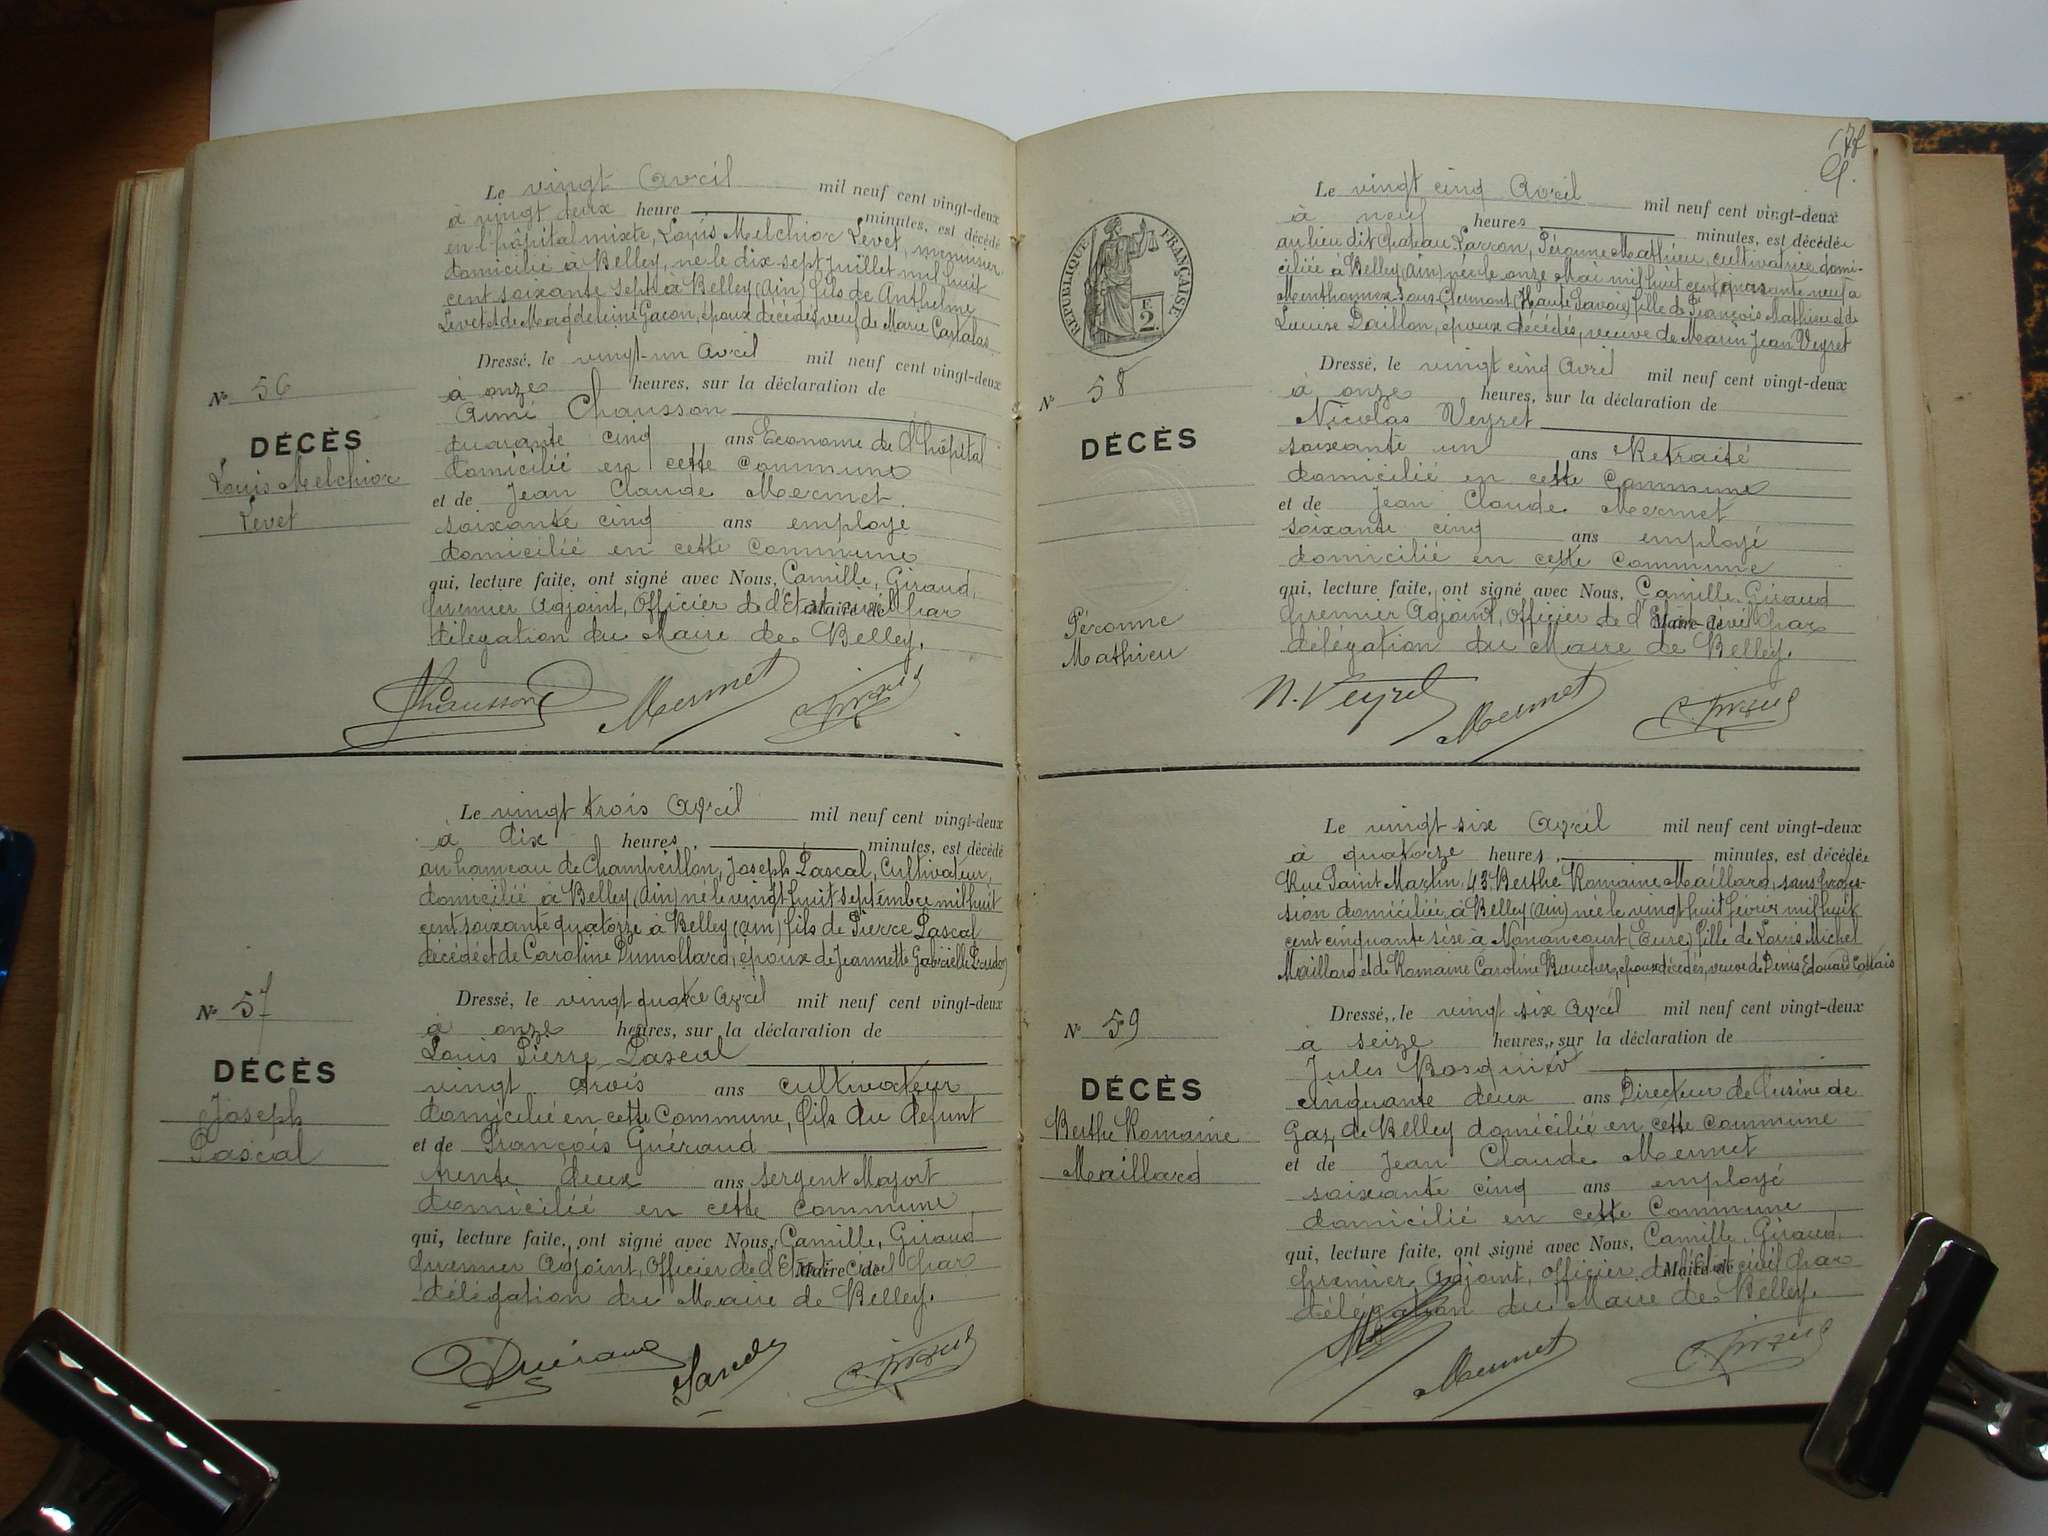 Le vingt Avril mil neuf cent vingt-deux
à vingt deux heure minutes, est décédé
en l'hôpital mixte, Louis Melchior Levet, menuisier
domicilié à Belley, né le dix sept Juillet mil huit
cent soixante sept à Belley (Ain) fils de Anthelme
Levet et de Magdeleine Gacon, époux décédés, veuf de Marie
Dressé, le vingt-un Avril mil neuf cent vingt-deux
à onze heures, sur la déclaration de
Aimé Chausson
quarante cinq ans Econome de l'hôpital
domicilié en cette commune
et de Jean Claude Mermet
soixante cinq ans employé
domicilié en cette commune
qui, lecture faite, ont signé avec Nous, Camille, Giraud,
premier Adjoint, Officier de l'Etat civil par Maire de
délégation du Maire de Belley.
N° 56
DÉCÈS
Louis Melchior
Levet
Chausson Mermet C. Giraud
Le vingt trois Avril mil neuf cent vingt-deux
à dix heures, minutes, est décédé
au hameau de Champeillon, Joseph Pascal, Cultivateur,
domicilié à Belley (Ain) né le vingt huit septembre mil huit
cent soixante quatorze à Belley (Ain) fils de Pierre Pascal
décédé et de Caroline Dumollard, époux de Jeannette Gabrielle
Dressé, le vingt quatre Avril mil neuf cent vingt-deux
à onze heures, sur la déclaration de
Louis Pierre Pascal
vingt trois ans cultivateur
domicilié en cette Commune, fils du défunt
et de François Guéraud
trente deux ans sergent Major
domicilié en cette commune
qui, lecture faite, ont signé avec Nous, Camille, Giraud
premier Adjoint, Officier de l'Etat civil par Maire de
délégation du Maire de Belley.
N° 57
DÉCÈS
Joseph
Pascal
Guéraud Pascal C. Giraud
RÉPUBLIQUE FRANÇAISE.
F.
2.
Le vingt cinq Avril mil neuf cent vingt-deux
à neuf heures minutes, est décédée
au lieu dit Chateau Larron, Péronne Mathieu, cultivatrice domi-
ciliée à Belley (Ain) née le onze Mai mil huit cent quarante neuf à
Menthonnex-sous-Clermont (Haute Savoie) fille de François Mathieu et de
Louise Daillon, époux décédés, veuve de Marin Jean Veyret
Dressé, le vingt cinq Avril mil neuf cent vingt-deux
à onze heures, sur la déclaration de
Nicolas Veyret
soixante un ans Retraité
domicilié en cette Commune
et de Jean Claude Mermet
soixante cinq ans employé
domicilié en cette commune
qui, lecture faite, ont signé avec Nous, Camille Giraud
premier Adjoint, Officier de l'Etat civil par Maire de
délégation du Maire de Belley.
N° 58
DÉCÈS
Péronne
Mathieu
N. Veyret Mermet C. Giraud
Le vingt six Avril mil neuf cent vingt-deux
à quatorze heures, minutes, est décédée
Rue Saint Martin, 43. Berthe Romaine Maillard, sans profes-
sion domiciliée à Belley (Ain) née le vingt huit février mil huit
cent cinquante seize à Nonancourt (Eure) fille de Louis Michel
Maillard et de Romaine Caroline Boucher, époux décédés, veuve de Denis Edouard
Dressé, le vingt six Avril mil neuf cent vingt-deux
à seize heures, sur la déclaration de
Jules
cinquante deux ans Directeur de l'usine de
Gaz, de Belley domicilié en cette commune
et de Jean Claude Mermet
soixante cinq ans employé
domicilié en cette Commune
qui, lecture faite, ont signé avec Nous, Camille, Giraud,
premier Adjoint, officier de l'Etat civil par Maire de
délégation du Maire de Belley.
N° 59
DÉCÈS
Berthe Romaine
Maillard
Mermet C. Giraud